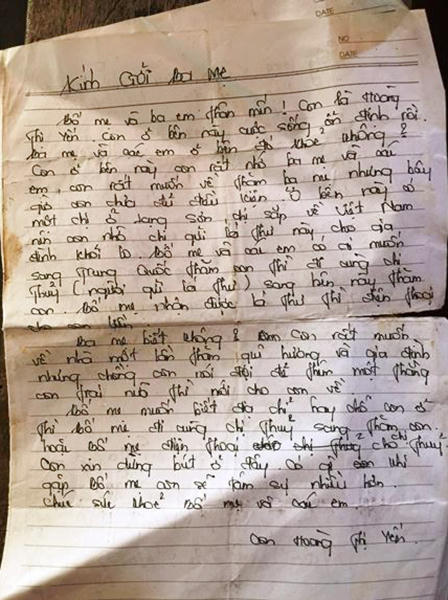 DATE
NO
DATE
Kính Gởi ba Mẹ
Bố mẹ và ba em thân mến! Con là Hoàng
Thị Yến. Con ở bên này cuộc sống ổn định rồi.
ba mẹ và các em ở bên đó khoẻ không?
Con ở bên này con rất nhớ ba mẹ và các
em, con rất muốn về thăm ba mẹ nhưng bây
giờ con chưa đủ điều kiện. Ở bên này có
một chị ở Lạng Sơn chị sắp về Việt Nam
nên con nhờ chị gửi lá thư này cho gia
đình khỏi lo. Bố mẹ và các em có ai muốn
sang Trung Quốc thăm con thì đi cùng chị
Thuỷ (người gửi lá thư) sang bên này thăm
con. Bố mẹ nhận được lá thư thì điện thoại
cho con liền.
Ba mẹ biết không? Con rất muốn
về nhà một lần thăm quê hương và gia đình
nhưng chồng con nói đợi đẻ thêm một thằng
con trai nữa thì mới cho con về.
Bố mẹ muốn biết địa chỉ hay chỗ con ở
thì bố mẹ đi cùng chị Thuỷ sang thăm con
hoặc bố mẹ điện thoại cho chị Thuỷ.
Con xin dừng bút ở đây có gì khi
gặp bố mẹ con sẽ tâm sự nhiều hơn.
Chúc sức khoẻ bố mẹ và các em.
Con Hoàng Thị Yến.